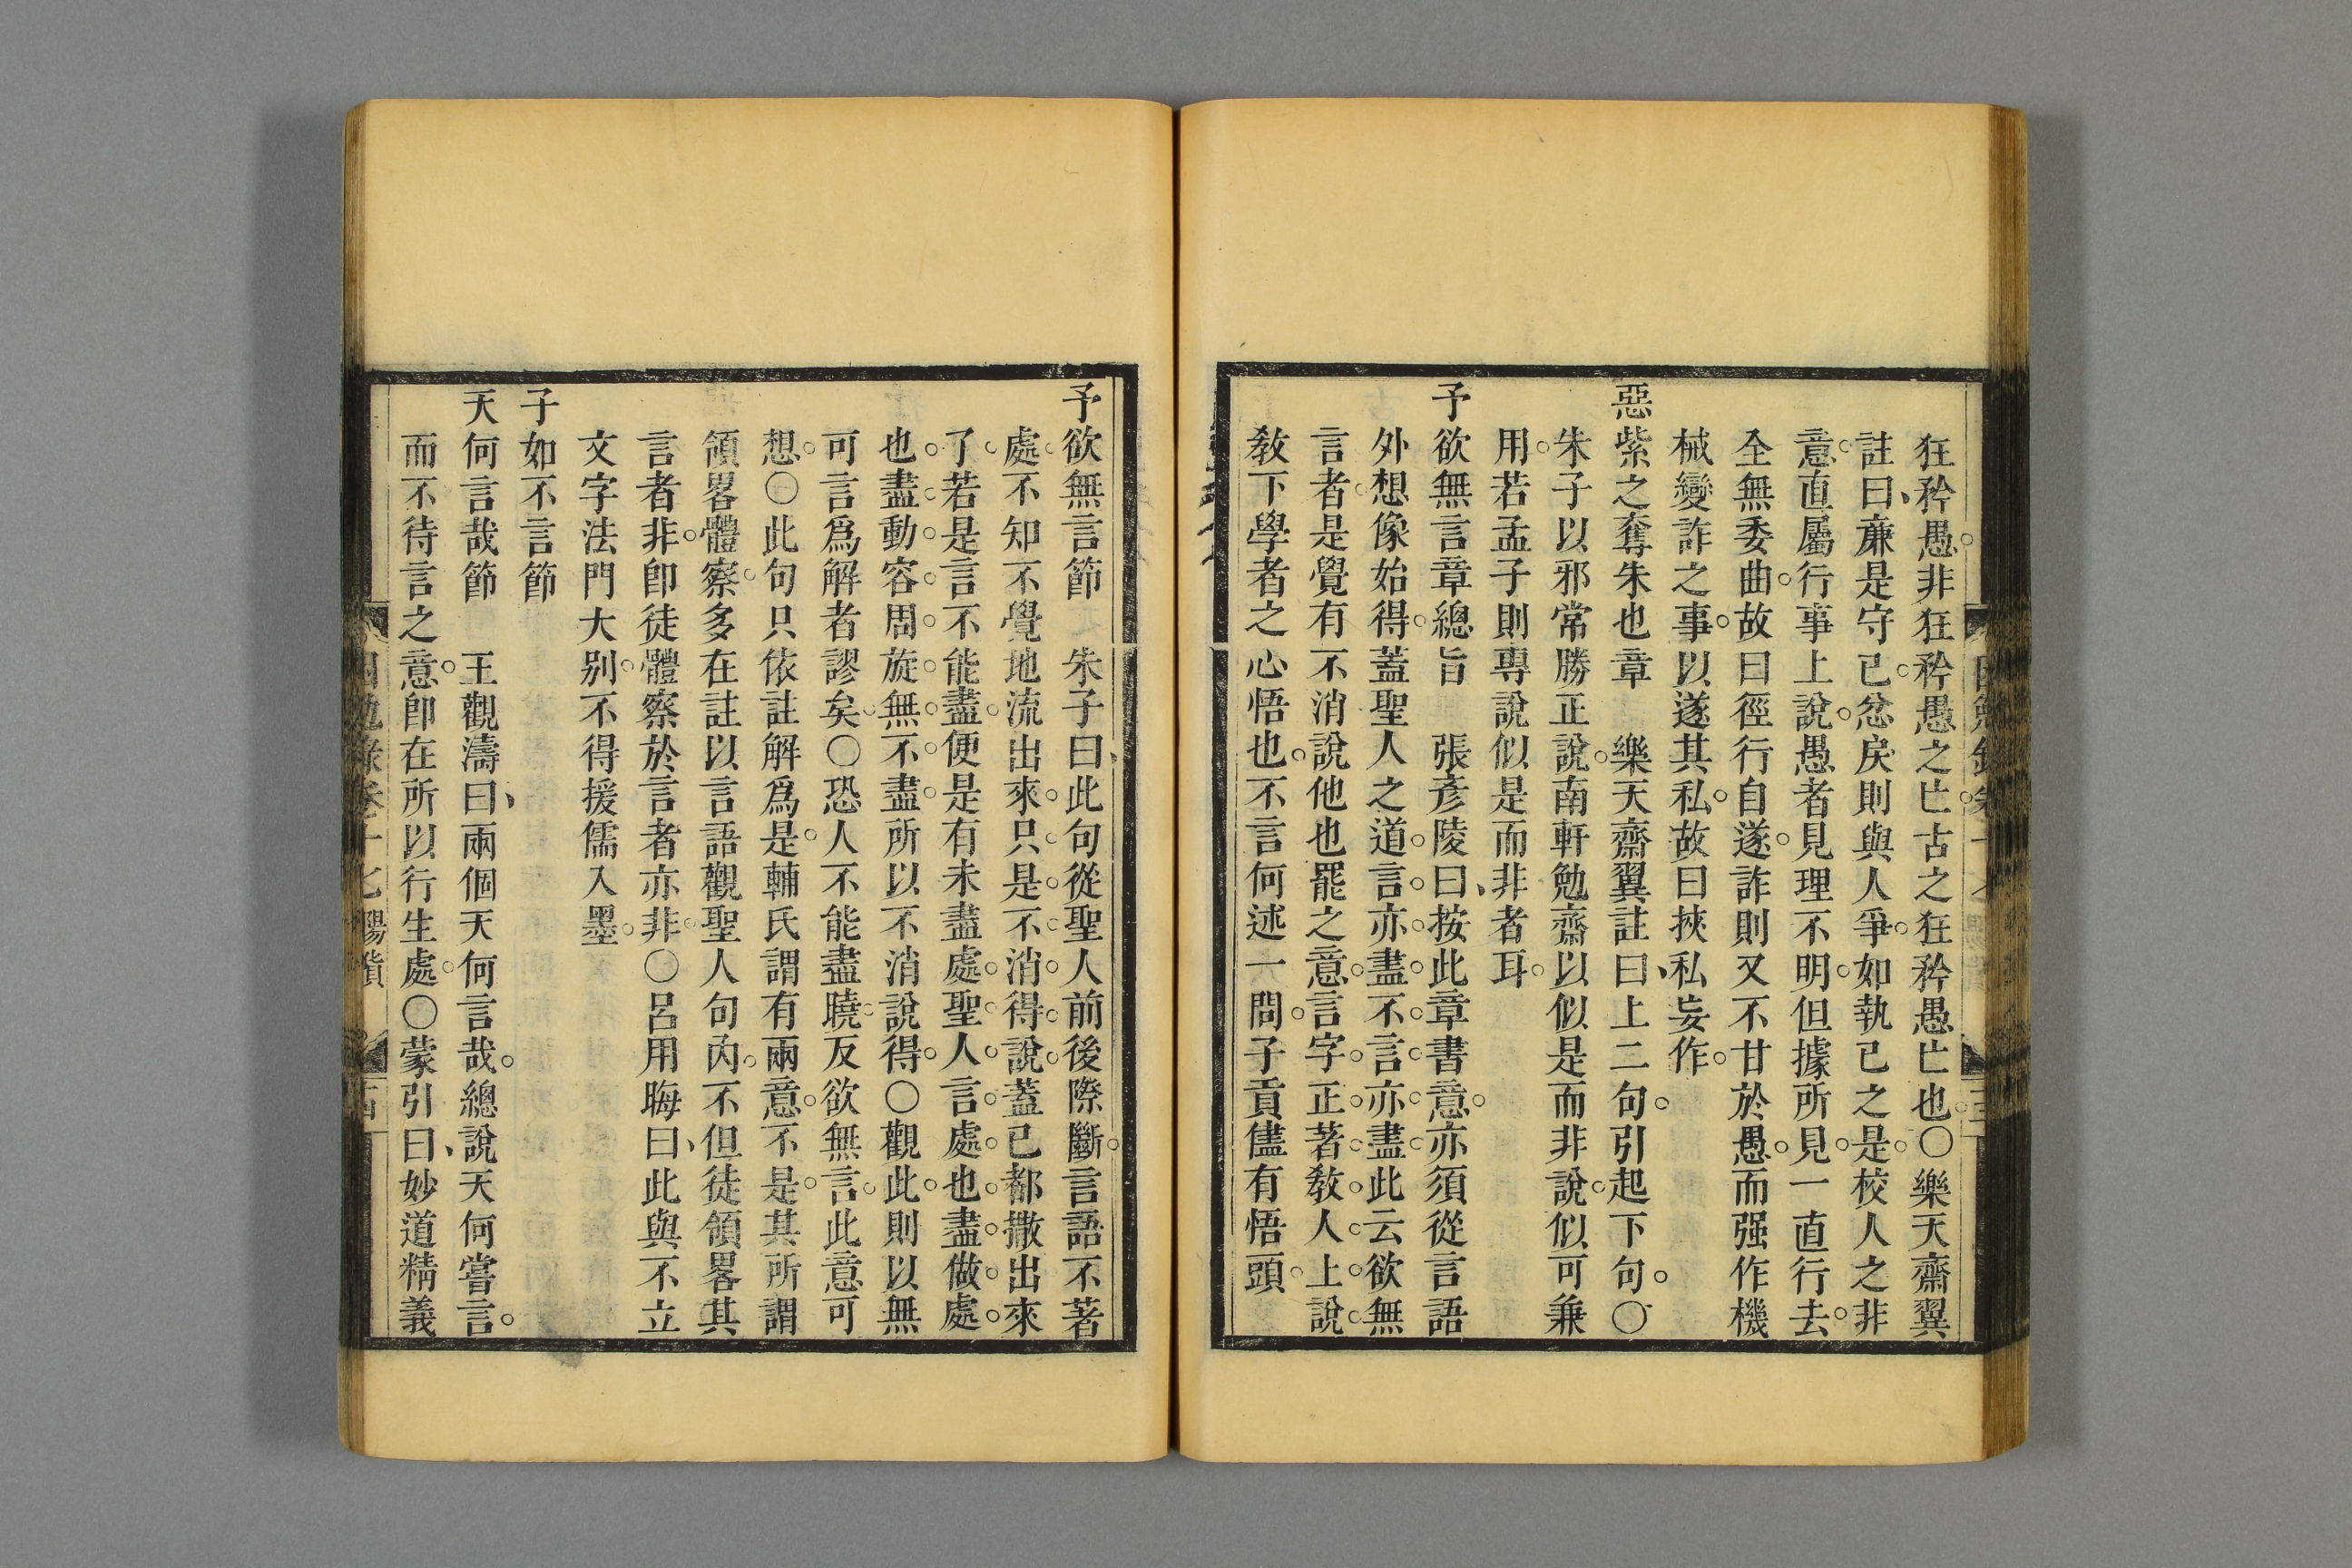 狂矜愚非狂矜愚之亡古之狂矜愚亡也〇樂天齋翼
註曰亷是守已忿戾則與人爭如執已之是校人之非
意直屬行事上說愚者見理不明但據所見一直行去
全無委曲故曰徑行自遂詐則又不甘於愚而强作機
械變詐之事以遂其私故曰挾私妄作
惡紫之奪朱也章　樂天齋翼註曰上二句引起下句〇
朱子以邪常勝正說南軒勉齋以似是而非說似可兼
用若孟子則專說似是而非者耳
予欲無言章總旨　張彥陵曰按此章書意亦須從言語
外想像始得蓋聖人之道言亦盡不言亦盡此云欲無
言者是覺有不消說他也罷之意言字正著敎人上說
敎下學者之心悟也不言何述一問子貢儘有悟頭
予欲無言節　朱子曰此句從聖人前後際斷言語不著
處不知不覺地流出來只是不消得說蓋已都撒出來
了若是言不能盡便是有未盡處聖人言處也盡做處
也盡動容周旋無不盡所以不消說得〇觀此則以無
可言爲解者謬矣〇恐人不能盡曉反欲無言此意可
想〇此句只依註解爲是輔氏謂有兩意不是其所謂
領畧體察多在註以言語觀聖人句內不但徒領畧其
言者非卽徒體察於言者亦非〇呂用晦曰此與不立
文字法門大别不得援儒入墨
子如不言節
天何言哉節　王觀濤曰兩個天何言哉總說天何嘗言
而不待言之意卽在所以行生處〇蒙引曰妙道精義
困勉錄卷十七陽貨